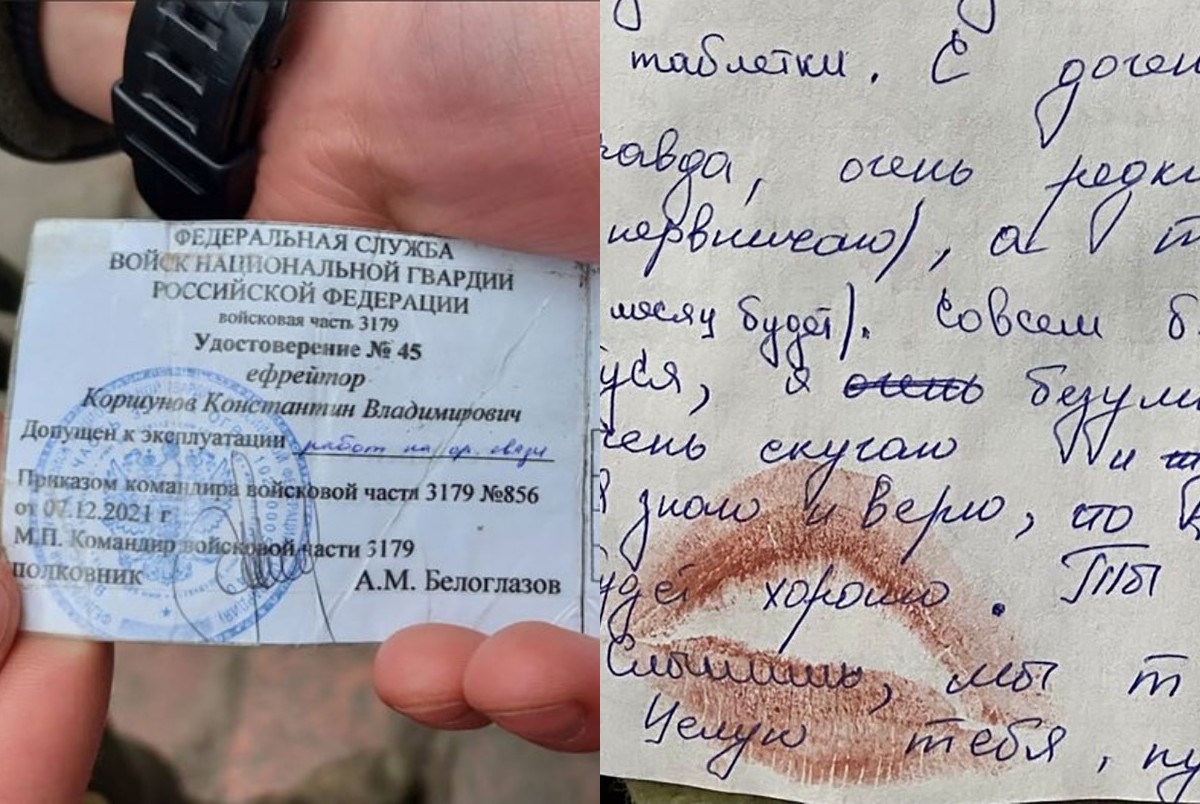 ФЕДЕРАЛЬНАЯ СЛУЖБА
ВОЙСК НАЦИОНАЛЬНОЙ ГВАРДИИ
РОССИЙСКОЙ ФЕДЕРАЦИИ
войсковая часть 3179
Удостоверение № 45
ефрейтор
Коршунов Константин Владимирович
Допущен к эксплуатации работ на ср. связи
Приказом командира войсковой части 3179 №856
от 07.12.2021 г
М.П. Командир войсковой части 3179
полковник А.М. Белоглазов
таблетки. С дочен
равда, очень редк
нервничаю), а т
месяц будет). Совсем б
уся, я очень безум
чень скучаю и
Я знаю и верю, что
удет хорошо. Ты
Слышишь, мы т
Целую тебя, пу